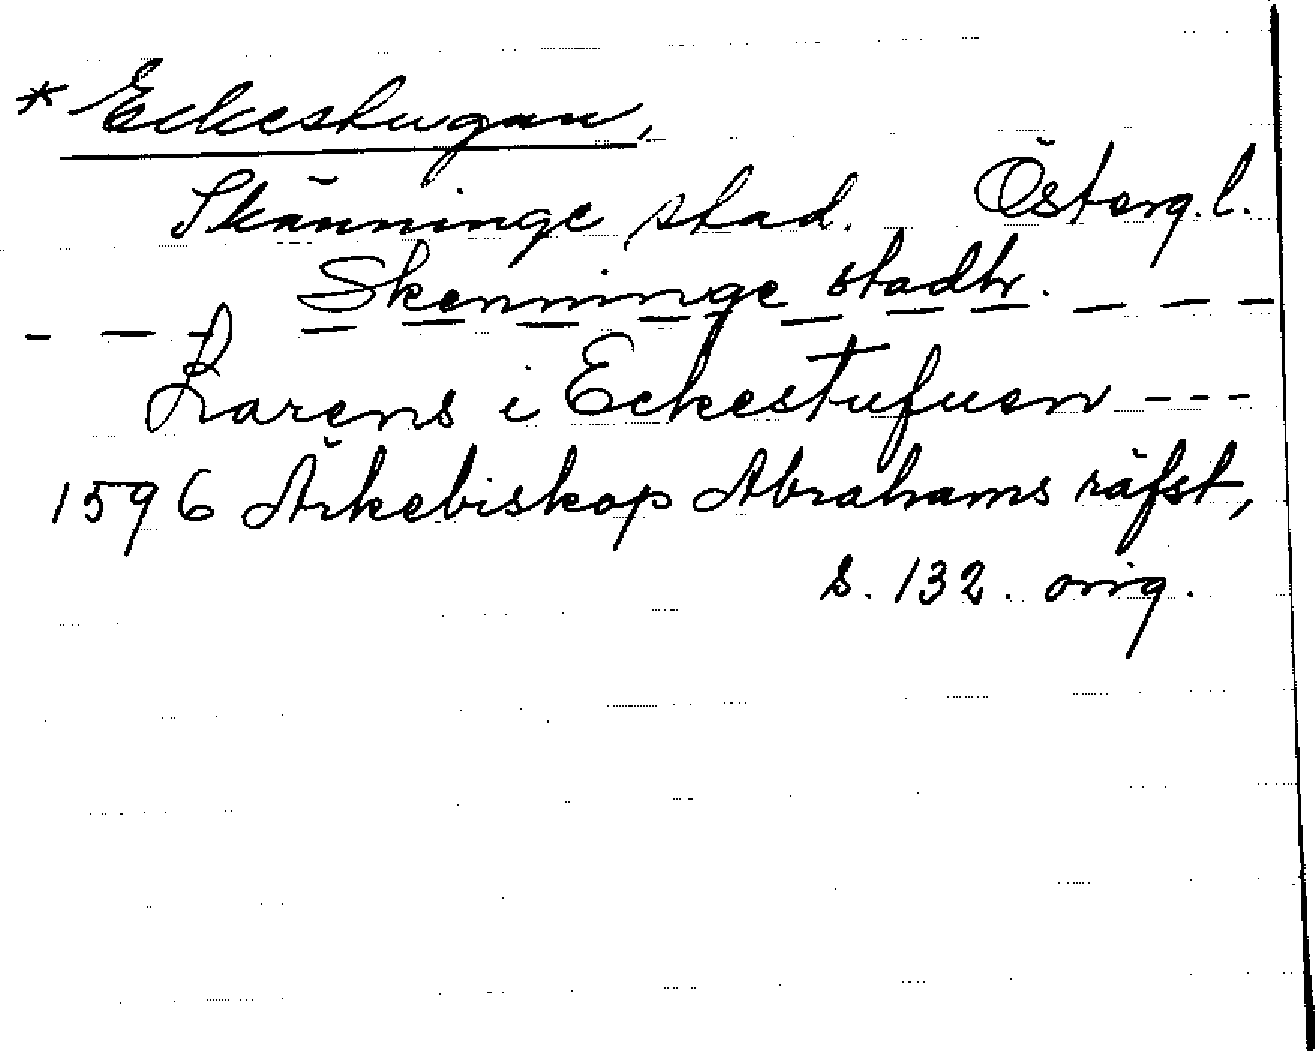 * Eckestugan,
Skänninge stad. Österg. l.
Skenninge stadtr.
Larens i Eckestufuan ---
1596 Ärkebiskop Abrahams räfst,
s. 132. orig.